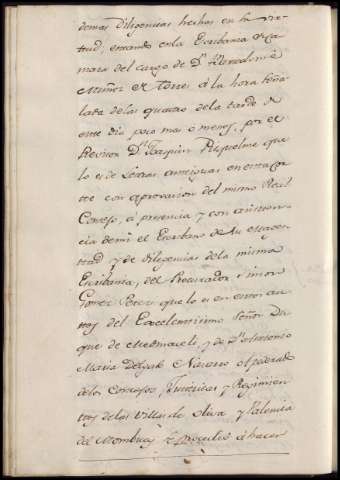 demas diligencias hechas en la vir-
tud, estando en la Escribania de Ca
mara del cargo de Dn. Bartolomé
Muñoz de Torres á la hora seña
lada de las quatro de la tarde de
este dia poco mas o menos, por el
Revisor Dn. Joaquin Riquelme que
lo es de Letras antiguas en esta cor
te con aprovacion del mismo Real
Consejo, á presencia y con asisten
cia de mi el Escribano de Su Mages
tad y de Diligencias de la misma
Escribania, del Procurador
Gomez que lo es en estos au
tos del Excelentisimo Señor Du
que de Medinaceli, y de Dn. Antonio
Maria Navarro Apoderado
de los Concejos, Justicias, y Regimien
tos de las Villas de Oliva y Valencia
del Mombuey se procedio á hacer